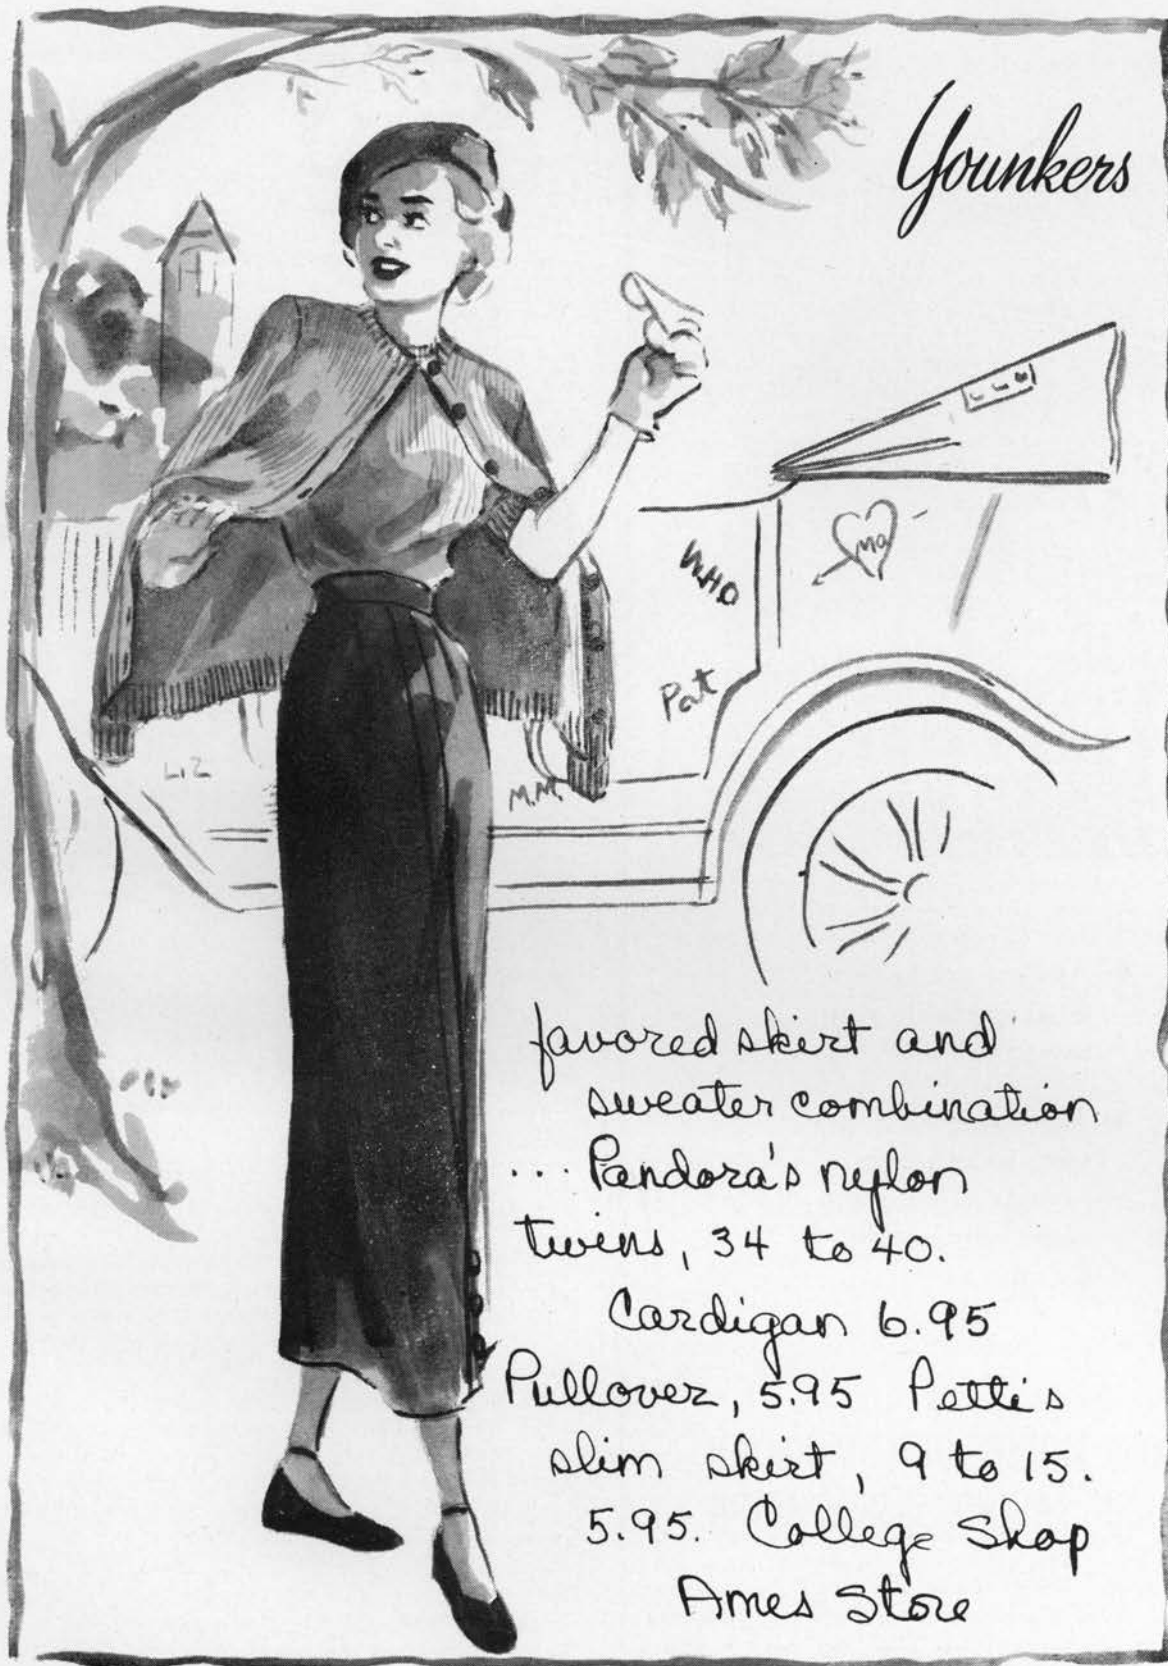 Younkers
Ma
WHO
Pat
LIZ
M.M.
favored skirt and
sweater combination
... Pandora's nylon
twins, 34 to 40.
Cardigan 6.95
Pullover, 5.95 Petti's
slim skirt, 9 to 15.
5.95. College Shop
Ames Store